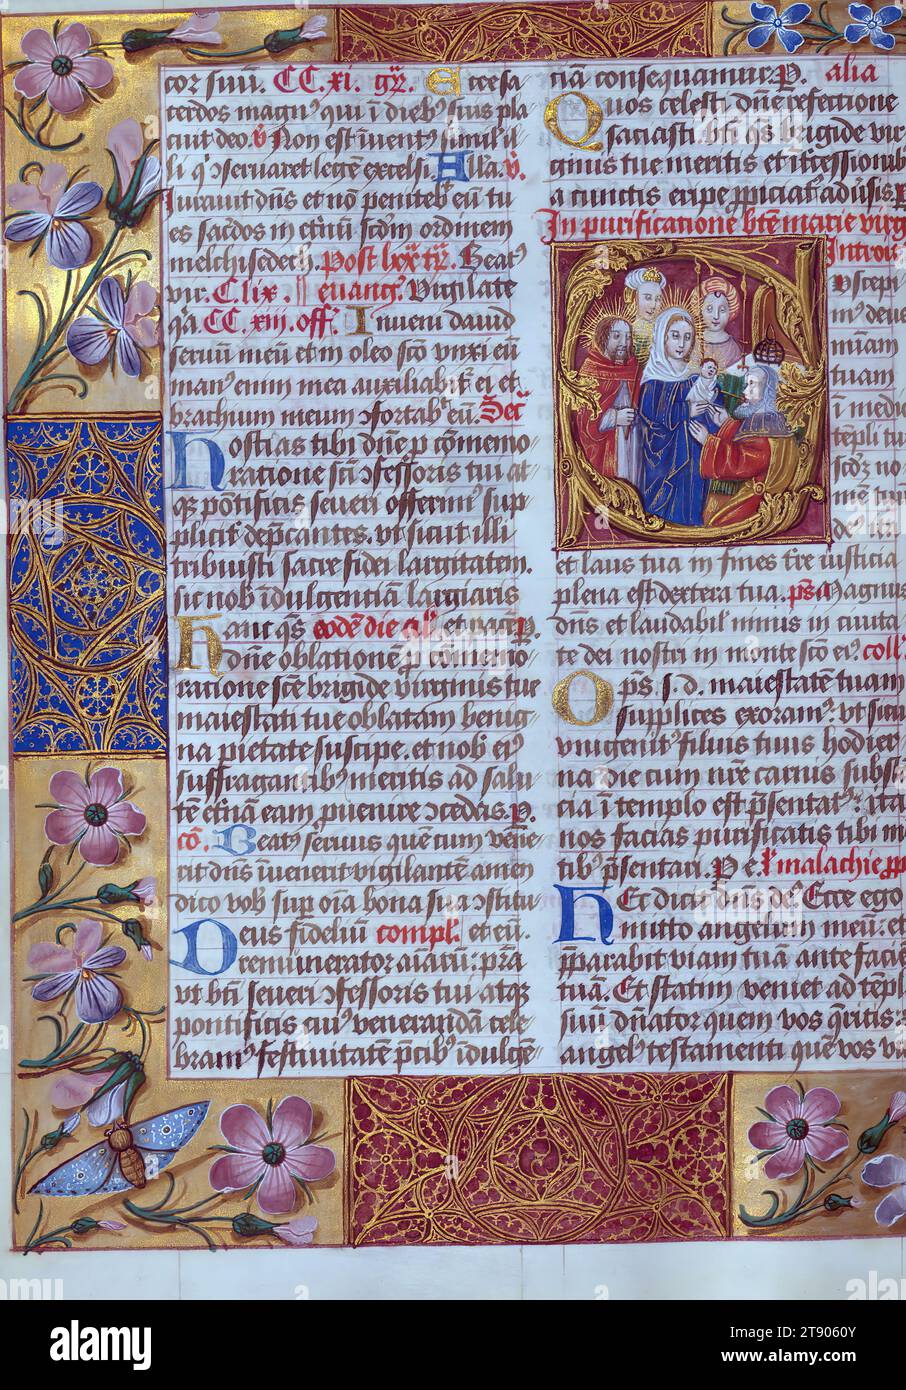 cor suu. CC.xi. gr. Ecce sa
cerdos magn9 qui i dieb9 suis pla
cuit deo. Non est invent9 simil il
li q 9servaret legem excelsi. Alla. V.
Iuravit dns et no peniteb eum tu
es sacdos in etnu scdm ordinem
melchisedech. Post lxx tr. Beat9
vir. C.lix. evang. Vigilate
CC.xiii. off. Inveni david
servum meu et in oleo sco unxi eu
man9 enim mea auxiliabit ei et
brachium meum 9fortab eum. Secr
hostias tibi dne p comemo
ratione sci 9fessoris tui at
q pontificis severi offerim9 sup
plicit depcantes. ut sicut illi
tribuisti sacre fidei largitatem.
sic nob idulgentiam largiaris
hanc qs eodem die et
dne oblatione p comemo
ratione sce brigide virginis tue
maiestati tue oblatam benig
na pietate suscipe. et nob ei9
suffragantib9 meritis ad salu
te etnam eam pvenire 9cedas. P.
co. Beat9 servus quem cum vene
rit dns invenerit vigilantem amen
dico vob sup oia bona sua 9stitu
Deus fidelium compl. et eu.
remunerator aiaru: psta
ut bti severi 9fessoris tui atq
pontificis cui9 veneranda cele
bram9 festivitate pcib9 idulge
ciam consequamur P. alia
Quos celesti dne refectione
saciasti. bte qs brigide vir
ginis tue meritis et itcessionib
a cunctis eripe ppiciat9 adusis. P
In purificatione bte marie virg
Introit
Uscepi
m9 deus
miam
tuam
i medio
tepli tu
scdm no
men tuu
de9 ita
et laus tua in fines tre iusticia
plena est dextera tua. ps Magnus
dns et laudabil nimis in civita
te dei nostri in monte sco ei9. coll
Ops. s. d. maiestatem tuam
supplices exoram9. ut sicu
unigenit9 filius tuus hodier
na die cum nre carnis subst
cia i templo est psentat9: ita
nos facias purificatis tibi me
tib9 psentari. P e. malachie
Hec dicit dns de9. Ecce ego
mitto angelum meu: et
pparabit viam tuam ante facie
tua. Et statim veniet ad tepl
suu dnator quem vos qritis:
angel9 testamenti que vos vu
alamy
Image ID: 2T9060Y
www.alamy.com